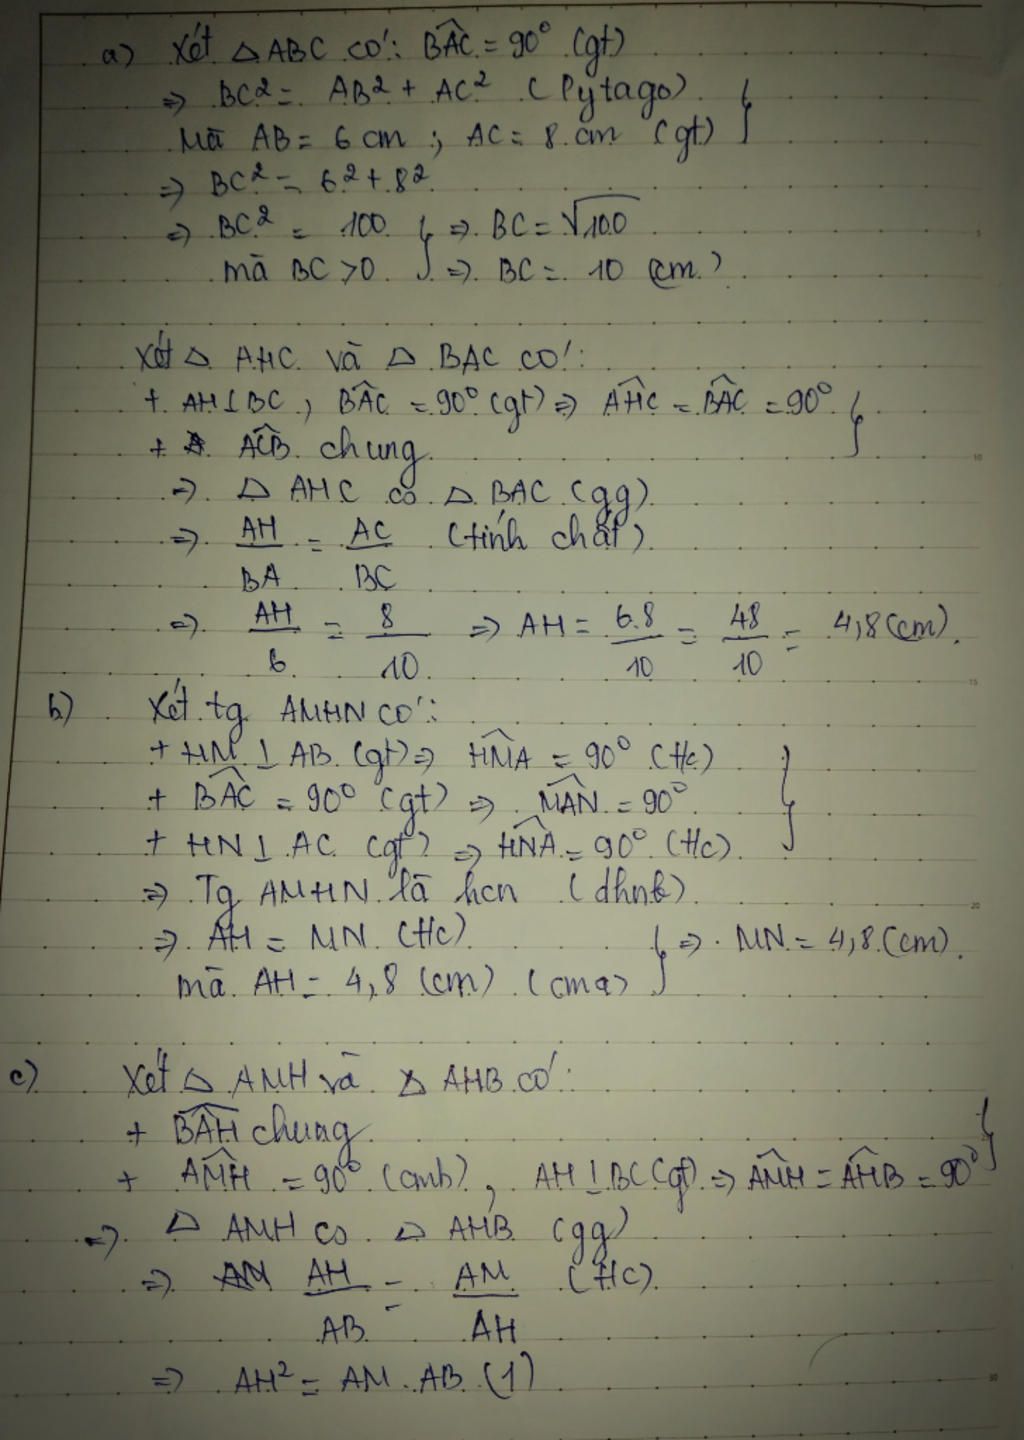 a) Xét △ABC có: BAC = 90° (gt)
⇒ BC² = AB² + AC² (Pytago)
Mà AB = 6 cm ; AC = 8 cm (gt)
⇒ BC² = 6² + 8²
⇒ BC² = 100 ⇒ BC = √100
mà BC > 0 ⇒ BC = 10 (cm)
Xét △ AHC và △ BAC có:
+ AH ⊥ BC, BAC = 90° (gt) ⇒ AHC = BAC = 90°
+ ACB chung
⇒ △ AHC ∽ △ BAC (gg)
⇒ AH/BA = AC/BC (tính chất)
⇒ AH/6 = 8/10 ⇒ AH = 6.8/10 = 48/10 = 4,8 (cm).
b) Xét tg AMHN có:
+ HM ⊥ AB (gt) ⇒ HMA = 90° (t/c)
+ BAC = 90° (gt) ⇒ MAN = 90°
+ HN ⊥ AC (gt) ⇒ HNA = 90° (t/c)
⇒ Tg AMHN là hcn (dhnb)
⇒ AH = MN (t/c) ⇒ MN = 4,8 (cm).
mà AH = 4,8 (cm) (cma)
c) Xét △ AMH và △ AHB có:
+ BAH chung
+ AMH = 90° (cmb), AH ⊥ BC (gt) ⇒ AMH = AHB = 90°
⇒ △ AMH ∽ △ AHB (gg)
⇒ AH/AB = AM/AH (t/c)
⇒ AH² = AM . AB (1)